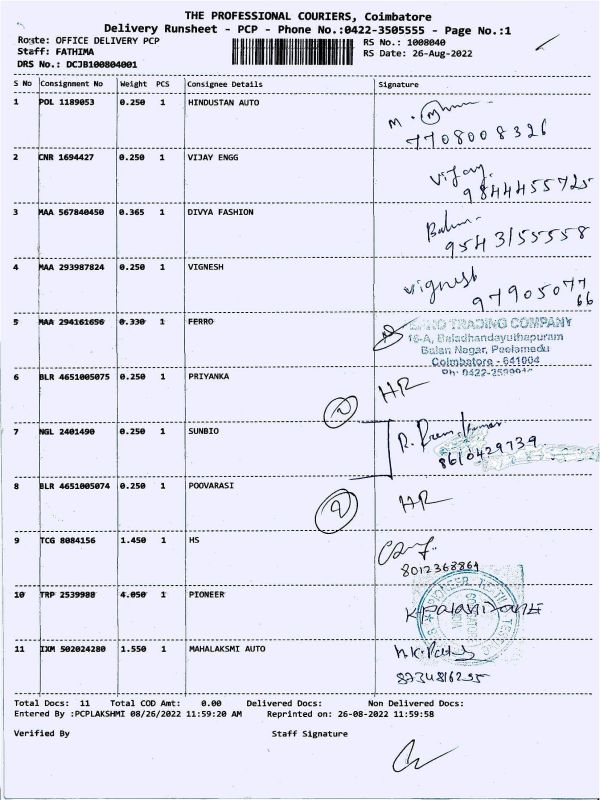 THE PROFESSIONAL COURIERS, Coimbatore
Delivery Runsheet - PCP - Phone No.:0422-3505555 - Page No.:1
Route: OFFICE DELIVERY PCP RS No.: 1008040
Staff: FATHIMA RS Date: 26-Aug-2022
DRS No.: DCJB100804001
S No Consignment No Weight PCS Consignee Details Signature
1 POL 1189053 0.250 1 HINDUSTAN AUTO
7708008326
2 CNR 1694427 0.250 1 VIJAY ENGG Vijay
9844455725
3 MAA 567840450 0.365 1 DIVYA FASHION
9543155558
4 MAA 293987824 0.250 1 VIGNESH vignesh
97905077
66
5 MAA 294161656 0.330 1 FERRO TRADING COMPANY
16-A, Baladhandayuthapuram
Balan Nagar, Peelamedu
Coimbatore - 641004
6 BLR 4651005075 0.250 1 PRIYANKA HR
7 NGL 2401490 0.250 1 SUNBIO R. Prem kumar
8610429739
8 BLR 4651005074 0.250 1 POOVARASI HR
9 TCG 8084156 1.450 1 HS
8012368864
10 TRP 2539980 4.050 1 PIONEER
11 IXM 502024280 1.550 1 MAHALAKSMI AUTO
8734816295
Total Docs: 11 Total COD Amt: 0.00 Delivered Docs: Non Delivered Docs:
Entered By :PCPLAKSHMI 08/26/2022 11:59:20 AM Reprinted on: 26-08-2022 11:59:58
Verified By Staff Signature